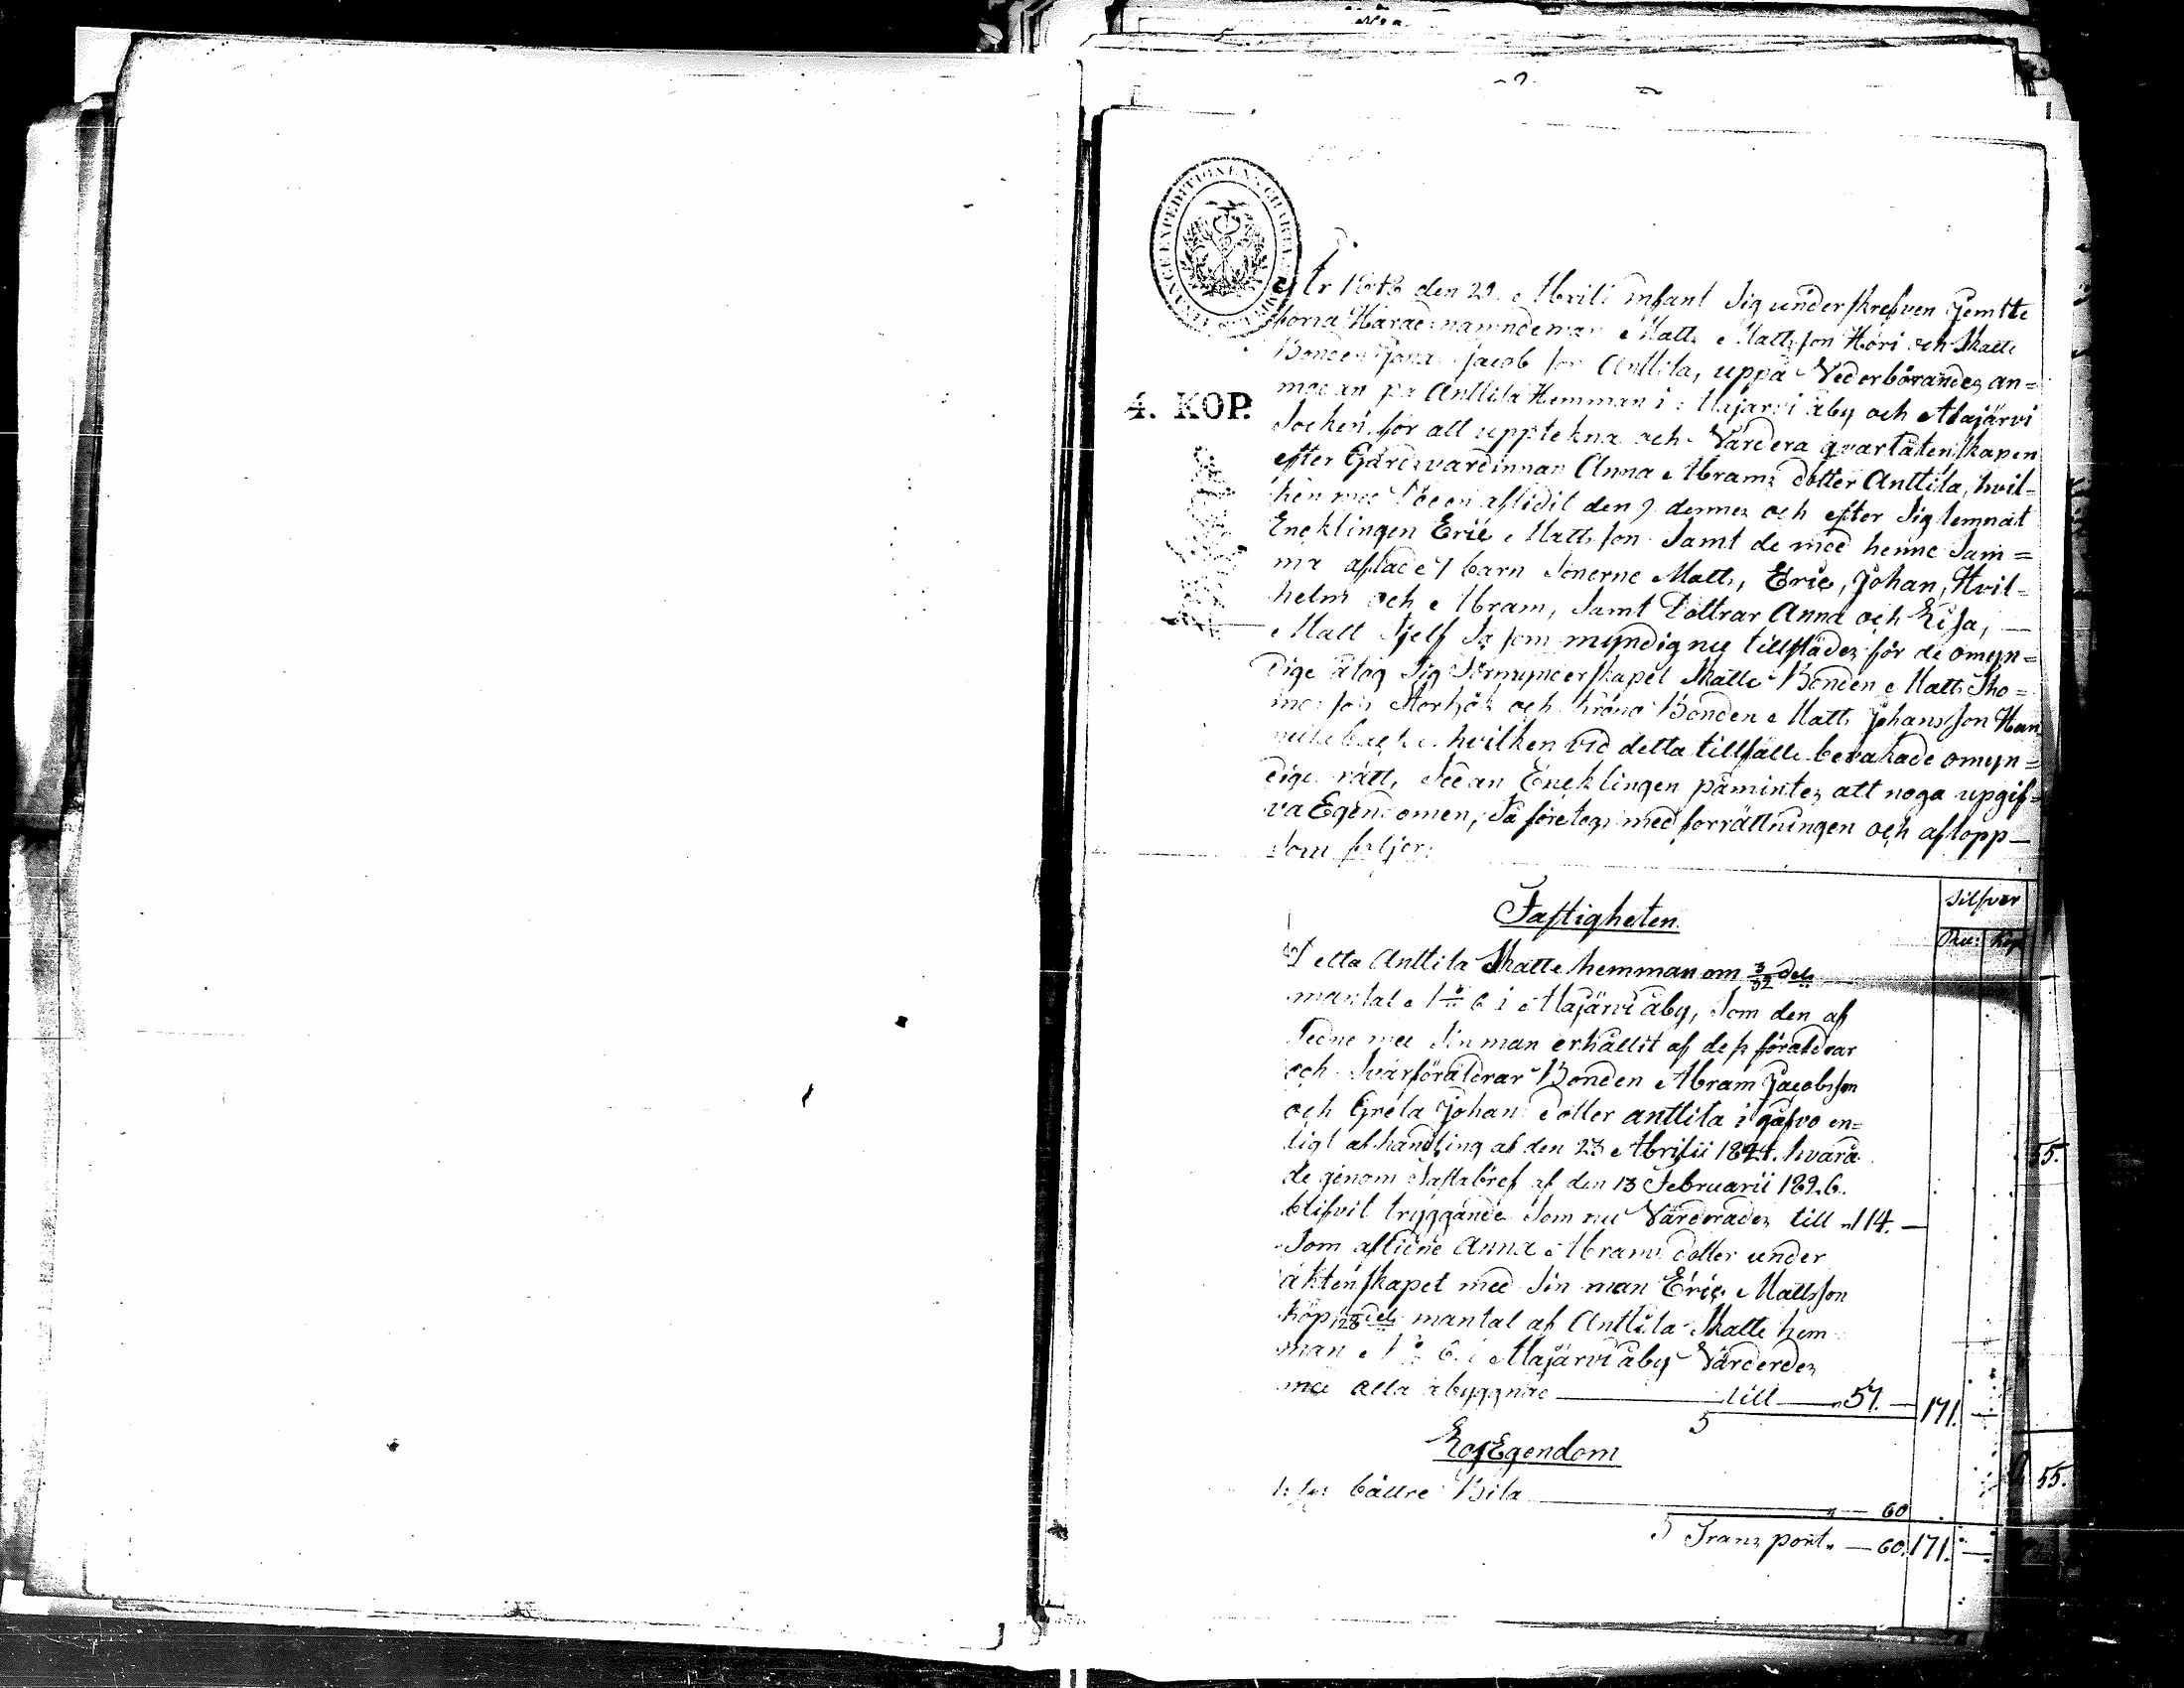 4. KOP.
År 1848 den 29 Aprili infant Sig underskrefven Jemtte
förra Häradsnämndeman Matts Mattsson Höri och Skatte
Bonden Jacob son Anttila, uppå Vederbörandes an=
modan på Anttila Hemman i Alajärvi åby och Alajärvi
Socken, för att upptekna och Värdera qvarlåtenskapen
efter Gårdsvärdinnan Anna Abrams dotter Anttila, hvil=
ken med Döden aflidit den 9 dennes och efter Sig lemnat
Encklingen Eric Matts son Samt de med henne Sam=
ma aflade 7 barn Sönerne Matts, Eric, Johan, Hvil=
helm och Abram, Samt Döttrar Anna och Lisa, —
Matt Sjelf Så som myndig nu tillstädes för de omyn=
dige åtog Sig Förmynderskapet Skatte Bonden Matts Tho=
mas son Storhök och Krono Bonden Matts Johansson Han
hvilken vid detta tillfälle bevakade omyn=
dige rätt, Sedan Encklingen påmintes att noga upgif=
va Egendomen, Så företogs med förrättningen och aflopp—
Som följer:
Silfver
Fastigheten
Ru: Kop
Detta Anttila Skatte hemman om 3/32 dels
mantal No 6 i Alajärvi åby, Som den af
ledne med Sin man erhållit af dess föräldrar
och Svärföräldrar Bonden Abram Jacobsson
och Greta Johans dotter anttila i gåfvo en=
ligt afhandling af den 23 Aprilii 1824. hvarå
de genom Fastabref af den 13 Februarii 1826.
blifvit tryggande Som nu Värderades till „ 114. —
Som aflidne Anna Abrams dotter under
äktenskapet med Sin man Eric Mattsson
Köp 128 dels mantal af Anttila Skatte hem
man No 6. i Alajärvi åby Värderdes
med alla åbyggnad — till — „ 57. — 171. —
Lös Egendom
1: st: bättre Bila — „ — 60
S Transport „ — 60. 171. —
55.
55.